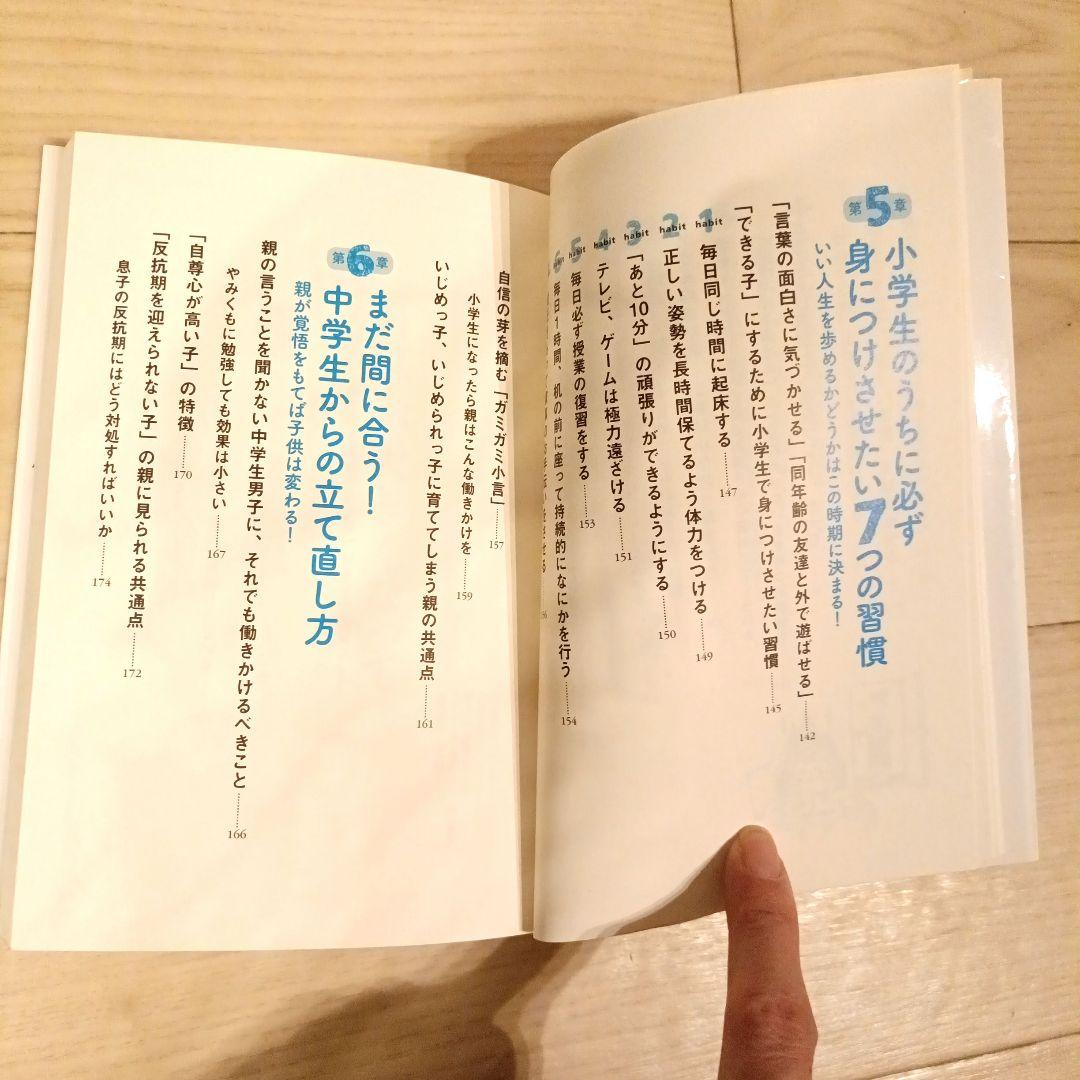 第5章
小学生のうちに必ず
身につけさせたい7つの習慣
いい人生を歩めるかどうかはこの時期に決まる！
「言葉の面白さに気づかせる」「同年齢の友達と外で遊ばせる」 142
「できる子」にするために小学生で身につけさせたい習慣 145
habit 1 毎日同じ時間に起床する 147
habit 2 正しい姿勢を長時間保てるよう体力をつける 149
habit 3 「あと10分」の頑張りができるようにする 150
habit 4 テレビ、ゲームは極力遠ざける 151
habit 5 毎日必ず授業の復習をする 153
habit 6 毎日1時間、机の前に座って持続的になにかを行う 154
自信の芽を摘む「ガミガミ小言」 157
小学生になったら親はこんな働きかけを 159
いじめっ子、いじめられっ子に育ててしまう親の共通点 161
第6章
まだ間に合う！
中学生からの立て直し方
親が覚悟をもてば子供は変わる！
親の言うことを聞かない中学生男子に、それでも働きかけるべきこと 166
やみくもに勉強しても効果は小さい 167
「自尊心が高い子」の特徴 170
「反抗期を迎えられない子」の親に見られる共通点 172
息子の反抗期にはどう対処すればいいか 174